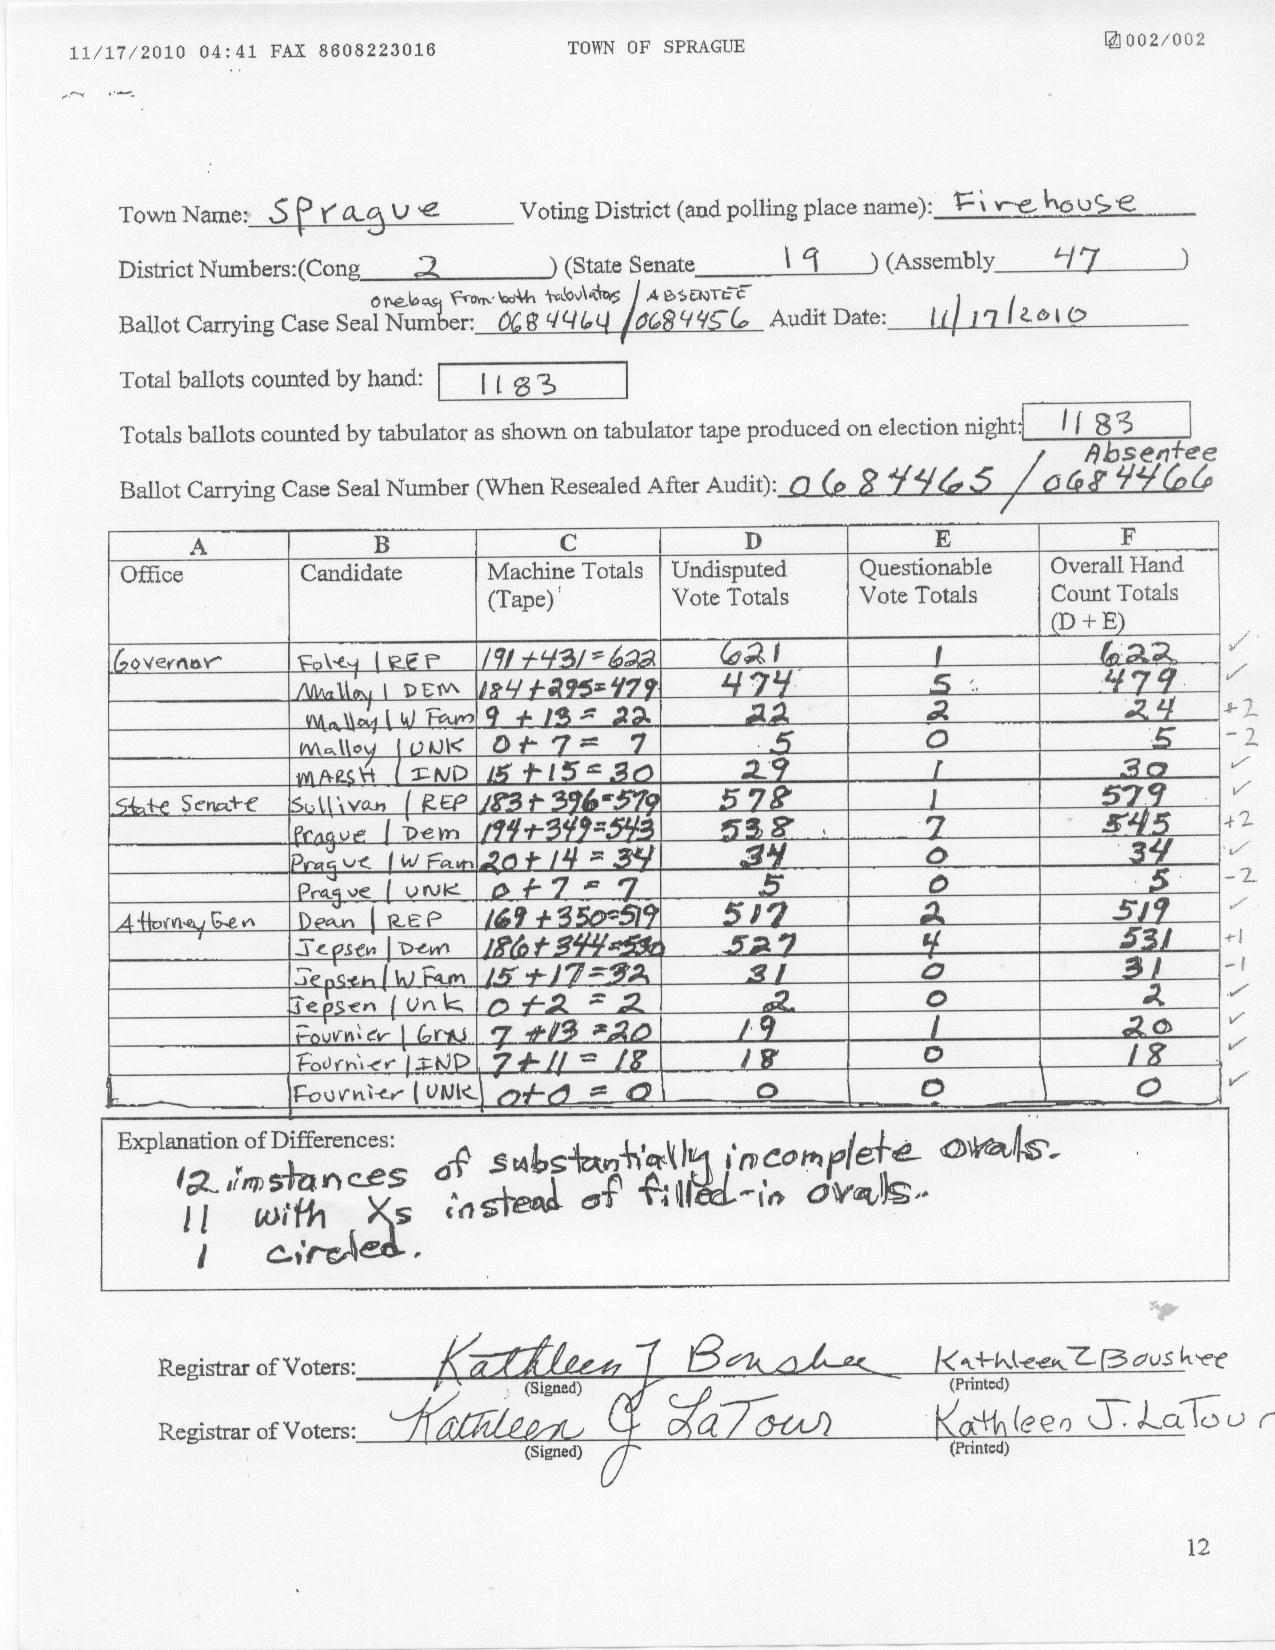 11/17/2010 04:41 FAX 8608223016 TOWN OF SPRAGUE 002/002
Town Name: Sprague Voting District (and polling place name): Firehouse
District Numbers:(Cong 2 ) (State Senate 19 ) (Assembly 47 )
one bag From both tabulators / ABSENTEE
Ballot Carrying Case Seal Number: 0684464 / 0684456 Audit Date: 11/17/2010
Total ballots counted by hand: 1183
Totals ballots counted by tabulator as shown on tabulator tape produced on election night: 1183
Absentee
Ballot Carrying Case Seal Number (When Resealed After Audit): 0684465 / 0684466
A B C D E F
Office Candidate Machine Totals (Tape) Undisputed Vote Totals Questionable Vote Totals Overall Hand Count Totals (D + E)
Governor Foley | REP 191+431=622 621 1 622 ✓
Malloy | DEM 184+295=479 474 5 479 ✓
Malloy | W Fam 9 + 13 = 22 22 2 24 +2
Malloy | UNK 0+ 7 = 7 5 0 5 -2
MARSH | IND 15 +15=30 29 1 30 ✓
State Senate Sullivan | REP 183+ 396=579 578 1 579 ✓
Prague | Dem 194+349=543 538 7 545 +2
Prague | W Fam 20+14 = 34 34 0 34 ✓
Prague | UNK 0 +7 = 7 5 0 5 -2
Attorney Gen Dean | REP 169 +350=519 517 2 519 ✓
Jepsen | Dem 186+344=530 527 4 531 +1
Jepsen | W Fam 15 +17=32 31 0 31 -1
Jepsen | Unk 0 +2 = 2 2 0 2 ✓
Fournier | Grn 7 +13 =20 19 1 20 ✓
Fournier | IND 7+11 = 18 18 0 18 ✓
Fournier | UNK 0+0 = 0 0 0 0 ✓
Explanation of Differences:
12 instances of substantially incomplete ovals.
11 with Xs instead of filled-in ovals.
1 circled.
Registrar of Voters: Kathleen J Boushee Kathleen Z Boushee
(Signed) (Printed)
Registrar of Voters: Kathleen J LaTour Kathleen J. LaTour
(Signed) (Printed)
12